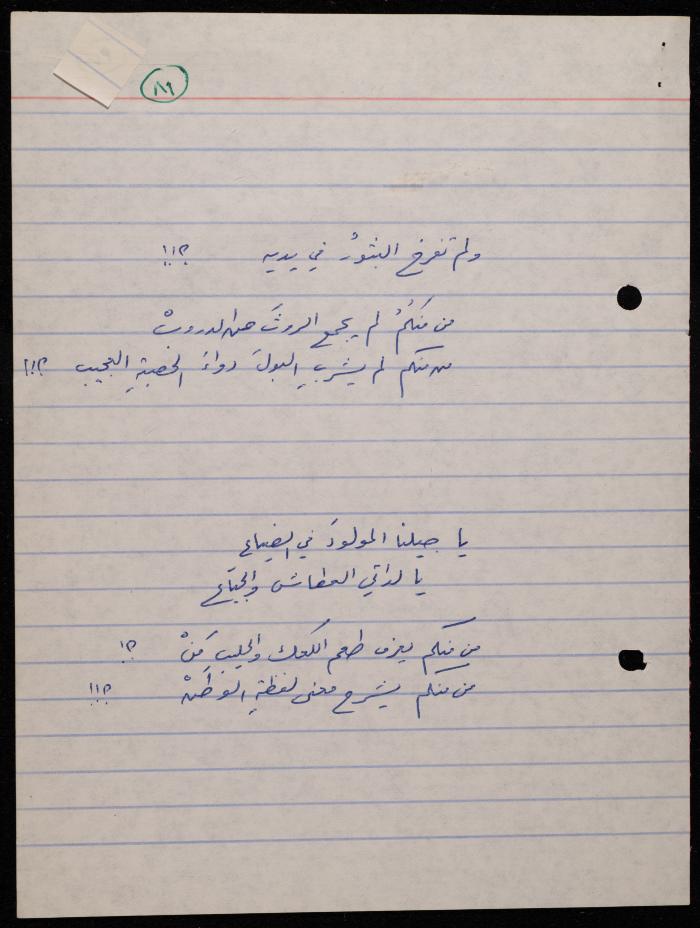 ٨٩
ولم تفرخ البثورُ في يديه ؟!!!
من منكُمُ لم يجمع الروثَ من الدروبْ
من منكم لم يشربِ البولَ دواءَ الحصبةِ العجيب ؟!!!
يا جيلنا المولودَ في الضياع
يا لداتي العطاش والجيّاع
من منكم يعرف طعم الكعك والحليب مَنْ ؟!
من منكم يشرح معنى لفظةِ الوطَنْ ؟!!!